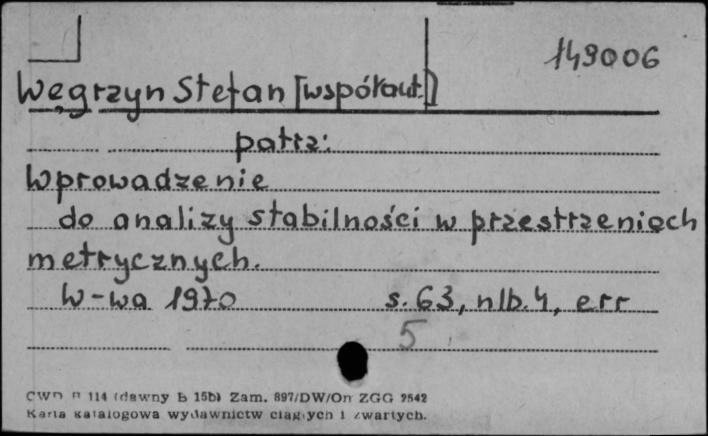 149006
Węgrzyn Stefan [współaut.]
patrz:
Wprowadzenie
do analizy stabilności w przestrzeniach
metrycznych.
W-wa 1970 s. 63, nlb. 4, err
5
CWD B 114 (dawny B 15b) Zam. 897/DW/On ZGG 2542
Karta katalogowa wydawnictw ciągłych i zwartych.